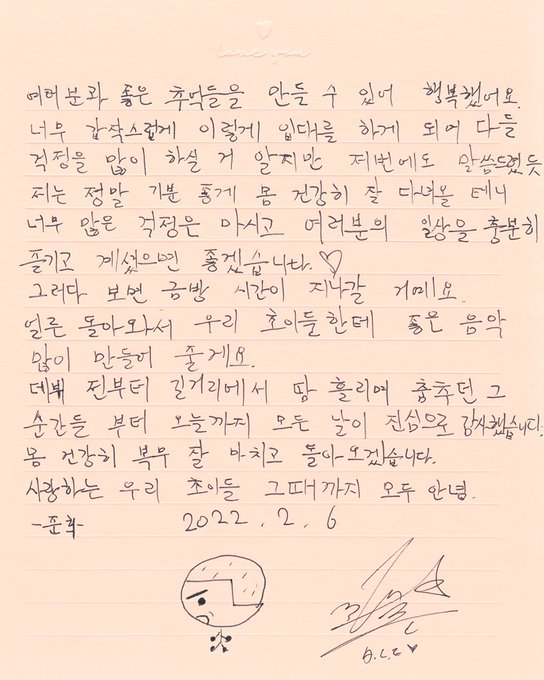 love you
여러분과 좋은 추억들을 만들 수 있어 행복했어요.
너무 갑작스럽게 이렇게 입대를 하게 되어 다들
걱정을 많이 하실 거 알지만 저번에도 말씀드렸듯
저는 정말 기분 좋게 몸 건강히 잘 다녀올 테니
너무 많은 걱정은 마시고 여러분의 일상을 충분히
즐기고 계셨으면 좋겠습니다.♡
그러다 보면 금방 시간이 지나갈 거예요.
얼른 돌아와서 우리 초이들한테 좋은 음악
많이 만들어 줄게요.
데뷔 전부터 길거리에서 땀 흘리며 춤추던 그
순간들 부터 오늘까지 모든 날이 진심으로 감사했습니다.
몸 건강히 복무 잘 마치고 돌아오겠습니다.
사랑하는 우리 초이들 그때까지 모두 안녕.
-준희- 2022.2.6
A.C.E ♥